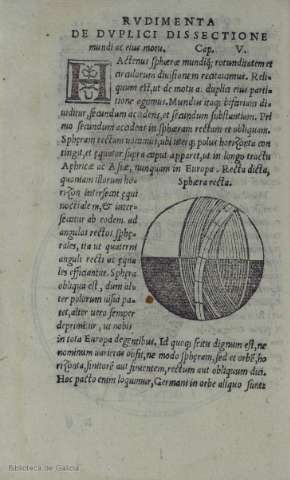 RVDIMENTA
DE DVPLICI DISSECTIONE
mundi ac eius motu. Cap. V.
HActenus sphæræ mundiq; rotunditatem et
circulorum diuisionem recitauimus. Reli-
quum est, ut de motu a. duplici eius parti-
tione egimus. Mundus itaq; bifariam di-
uiditur, secundum accidens, et secundum substantiam. Pri
mo secundum accidens in sphæram rectam et obliquam.
Sphæram rectam uocamus, ubi uterq; polus horizonta con
tingit, et equator supra caput apparet, ut in longo tractu
Aphricæ ac Asiæ, nunquam in Europa. Recta dicta,
quoniam illorum ho
Sphæra recta.
rizon intersecant equi
noctialem, & inter-
secantur ab eodem ad
angulos rectos sphę-
rales, ita ut quaterni
anguli recti ac equa
les efficiantur. Sphæra
obliqua est, dum al-
ter polorum uisui pa-
tet, alter uero semper
deprimitur, ut nobis
in tota Europa degentibus. Id quoq; scitu dignum est, ne
nominum uarietas obsit, ne modo sphæram, sed et orbē, ho
rizonta, finitorē aut finientem, rectum aut obliquum dici.
Hoc pacto enim loquimur, Germani in orbe aliquo
Biblioteca de Galicia